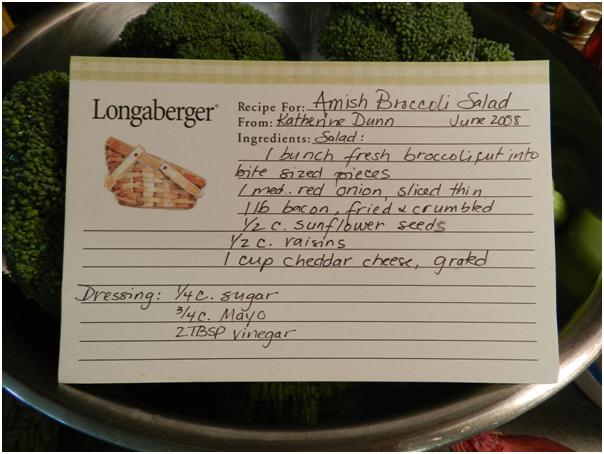 Longaberger®
Recipe For: Amish Broccoli Salad
From: Katherine Dunn June 2008
Ingredients: Salad:
1 bunch fresh broccoli, cut into
bite sized pieces
1 med. red onion, sliced thin
1 lb bacon, fried & crumbled
1/2 c. sunflower seeds
1/2 c. raisins
1 cup cheddar cheese, grated
Dressing: 1/4 c. sugar
3/4 c. Mayo
2 TBSP vinegar